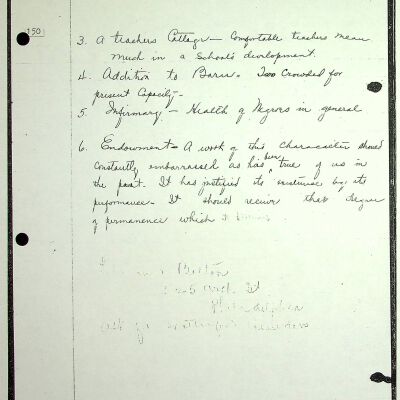 150
3. A teachers Cottage — Comfortable teachers mean
much in a School's development.
4. Addition to Barn. Too Crowded for
present Capacity —
5. Infirmary — Health of Negroes in general
6. Endowment — A work of this character should
Constantly embarrassed as has been true of us in
the past. It has justified its existence by its
performance. It should receive that degree
of permanence which it
Boston
Arch St
Philadelphia